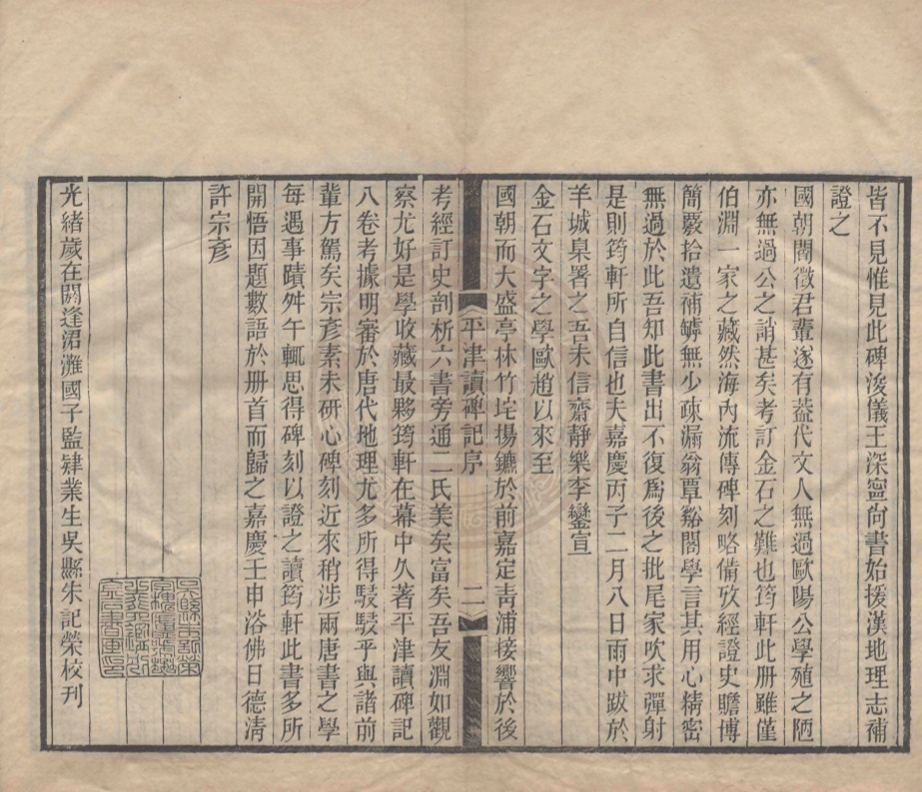 皆不見惟見此碑浚儀王深寧尙書始援漢地理志補
證之
國朝閻徵君輩遂有葢代文人無過歐陽公學殖之陋
亦無過公之誚甚矣考訂金石之難也筠軒此册雖僅
伯淵一家之藏然海內流傳碑刻略備攷經證史贍博
簡覈拾遺補罅無少疎漏翁覃谿閣學言其用心精密
無過於此吾知此書出不復爲後之批尾家吹求彈射
是則筠軒所自信也夫嘉慶丙子二月八日雨中跋於
羊城臬署之吾未信齋靜樂李鑾宣
金石文字之學歐趙以來至
平津讀碑記序
二
國朝而大盛亭林竹垞揚鑣於前嘉定靑浦接響於後
考經訂史剖析六書旁通二氏美矣富矣吾友淵如觀
察尤好是學收藏最夥筠軒在幕中久著平津讀碑記
八卷考據明審於唐代地理尤多所得駸駸乎與諸前
輩方駕矣宗彥素未研心碑刻近來稍涉兩唐書之學
每遇事蹟舛午輒思得碑刻以證之讀筠軒此書多所
開悟因題數語於册首而歸之嘉慶壬申浴佛日德淸
許宗彥
光緒歲在閼逢涒灘國子監肄業生吳縣朱記榮校刊